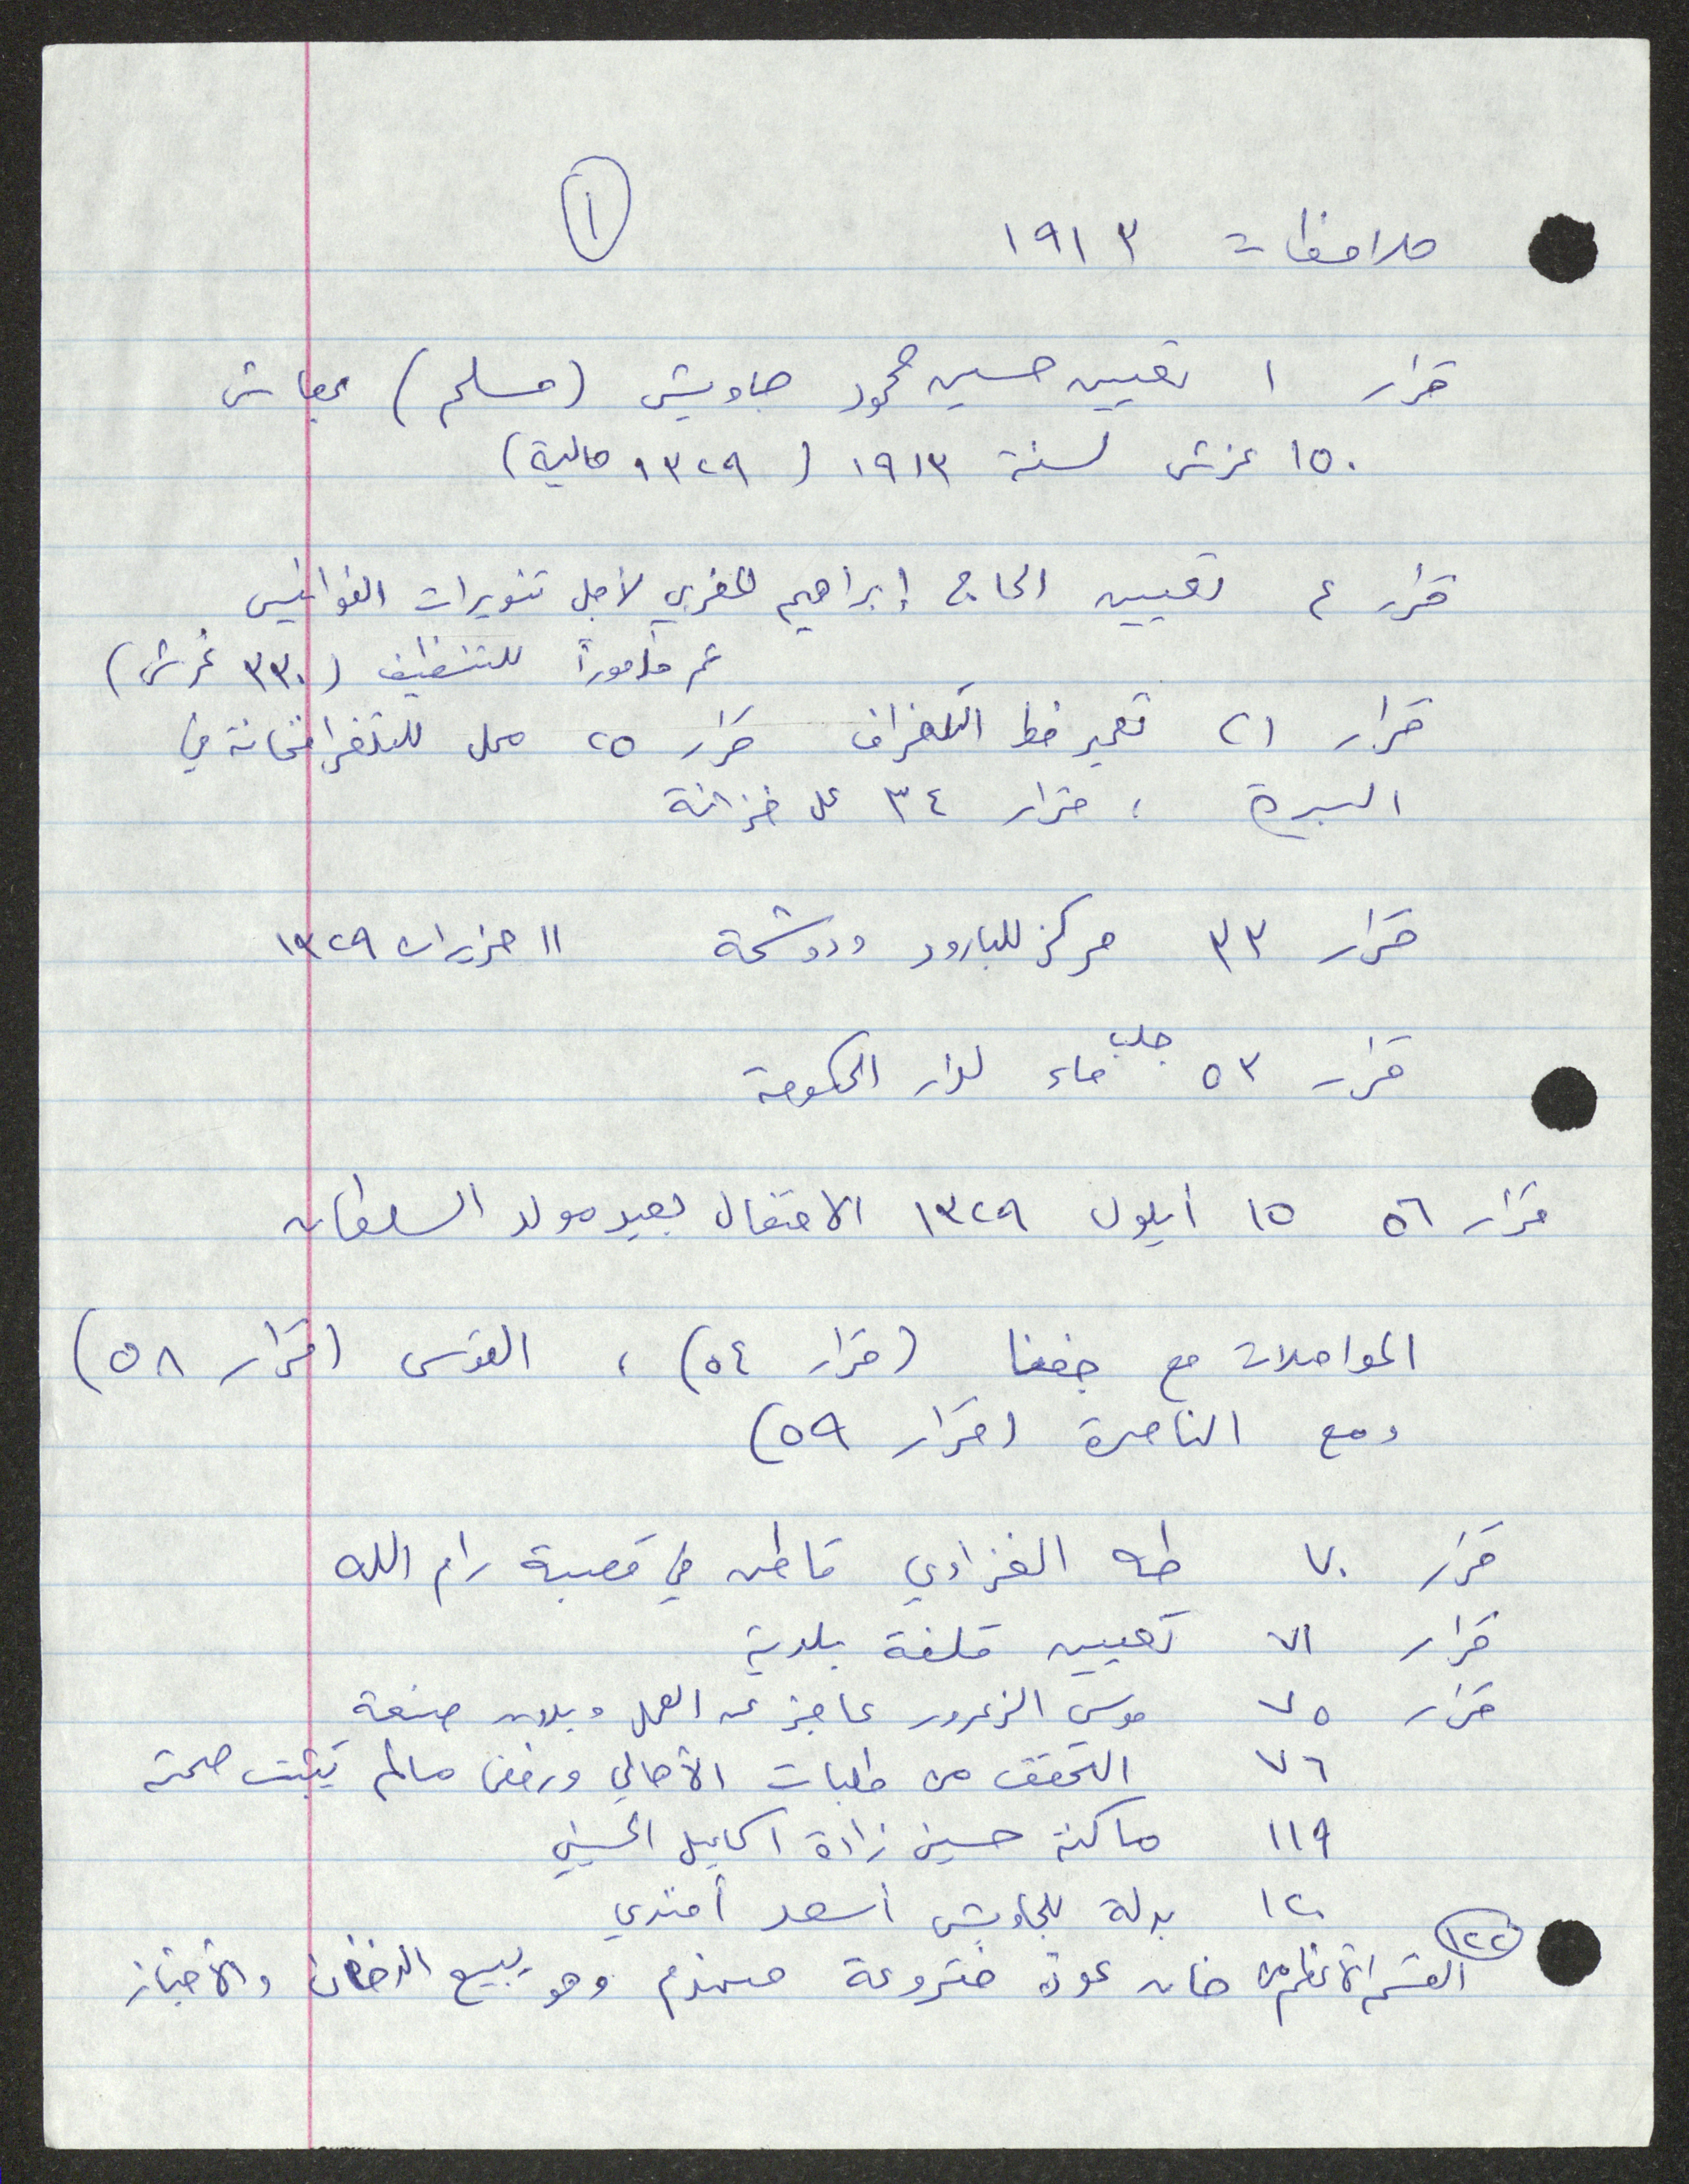 ١
ملاحظات ١٩١٣
قرار ١ تعيين حسين محمود جاويش (مسلم) بمعاش
١٥٠ غرش لسنة ١٩١٣ (١٣٢٩ مالية)
قرار ٤ تعيين الحاج إبراهيم المغربي لأجل تنويرات الفوانيس
ثم مأموراً للتنظيف (٣٣٠ غرش)
قرار ٢١ تعمير خط التلغراف قرار ٢٥ محل للتلغرافخانة في
البيرة ، قرار ٣٤ عمل خزانة
قرار ٣٣ مركز للبارود ١١ حزيران ١٣٢٩
قرار ٥٣ جلب ماء لدار الحكومة
قرار ٥٦ ١٥ أيلول ١٣٢٩ الاحتفال بعيد مولد السلطان
المواصلات مع جفنا (قرار ٥٤) ، القدس (قرار ٥٨)
ومع الناصرة (قرار ٥٩)
قرار ٧٠ طه الغزاوي قاطن في قصبة رام الله
قرار ٧١ تعيين قلفة بلدية
قرار ٧٥ موسى الزعرور عاجز عن العمل وبدون صنعة
٧٦ التحقق من طلبات الأهالي ورفض مالم يثبت صحته
١١٩ ماكنة حسيني زادة اسماعيل الحسيني
١٢٠ بدلة للجاويش أسعد أفندي
١٢٢
القسم الأعظم من خان عودة منهدم وهو يبيع الدخان والأخباز